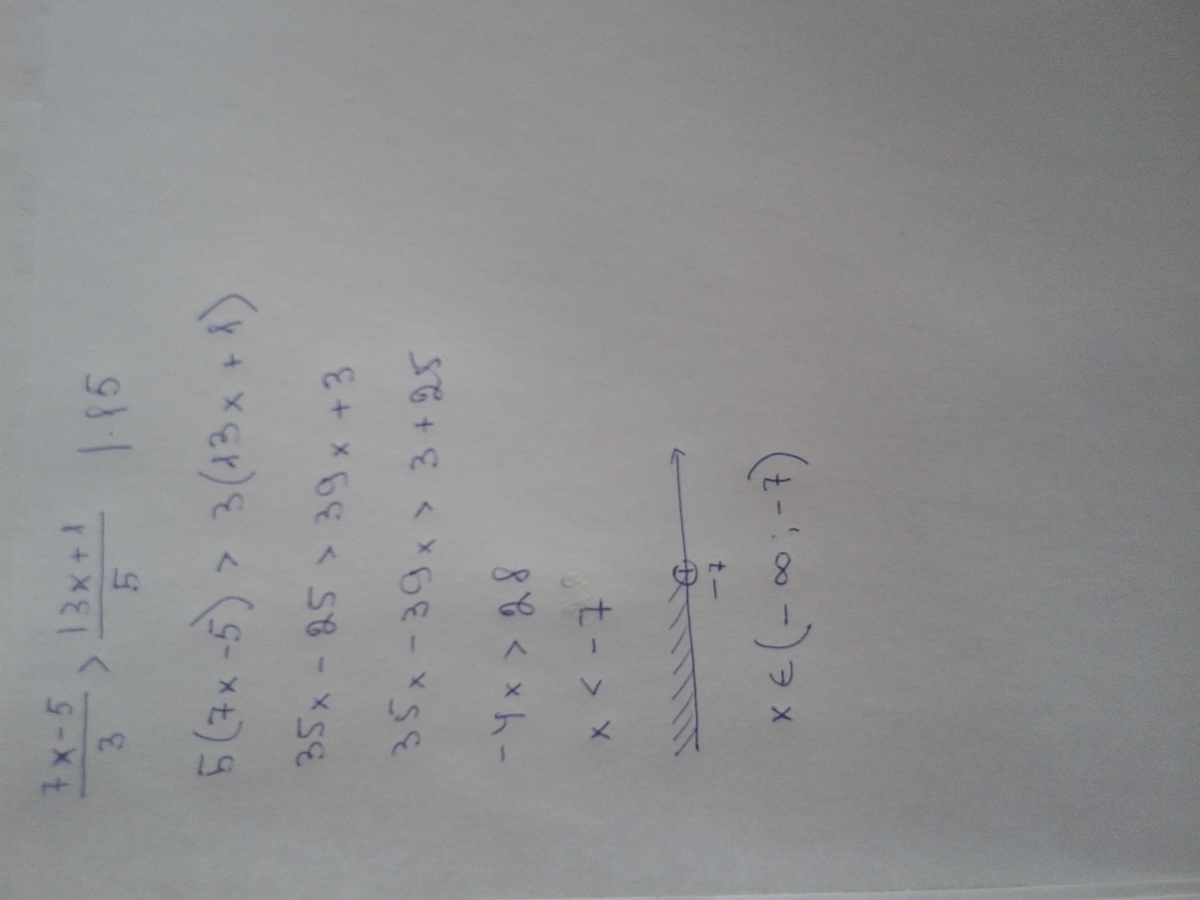 7x-5/3 > 13x+1/5 |·15
5(7x-5) > 3(13x+1)
35x - 25 > 39x + 3
35x - 39x > 3 + 25
-4x > 28
x < -7
-7
x ∈ (-∞; -7)